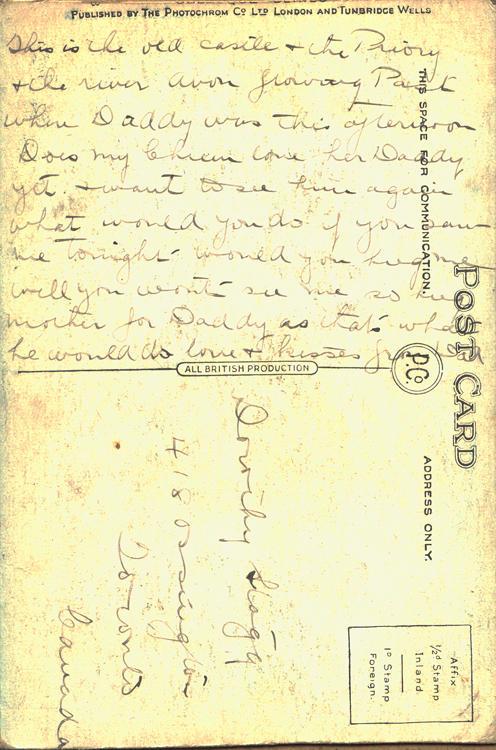 PUBLISHED BY THE PHOTOCHROM CO LTD LONDON AND TUNBRIDGE WELLS
This is the old castle & the Priory
& the river avon flowing Past
where Daddy was this afternoon
Does my love her Daddy
yet. & want to see him again
what would you do if you saw
me tonight would you hug me
well you wont see me so
mother for Daddy as that's what
he would do love & kisses from Dad
ALL BRITISH PRODUCTION
THIS SPACE FOR COMMUNICATION.
POST CARD
P.Co
ADDRESS ONLY.
Dorothy
418 Ossington
Toronto
Canada
Affix
½d Stamp
Inland
1d Stamp
Foreign.